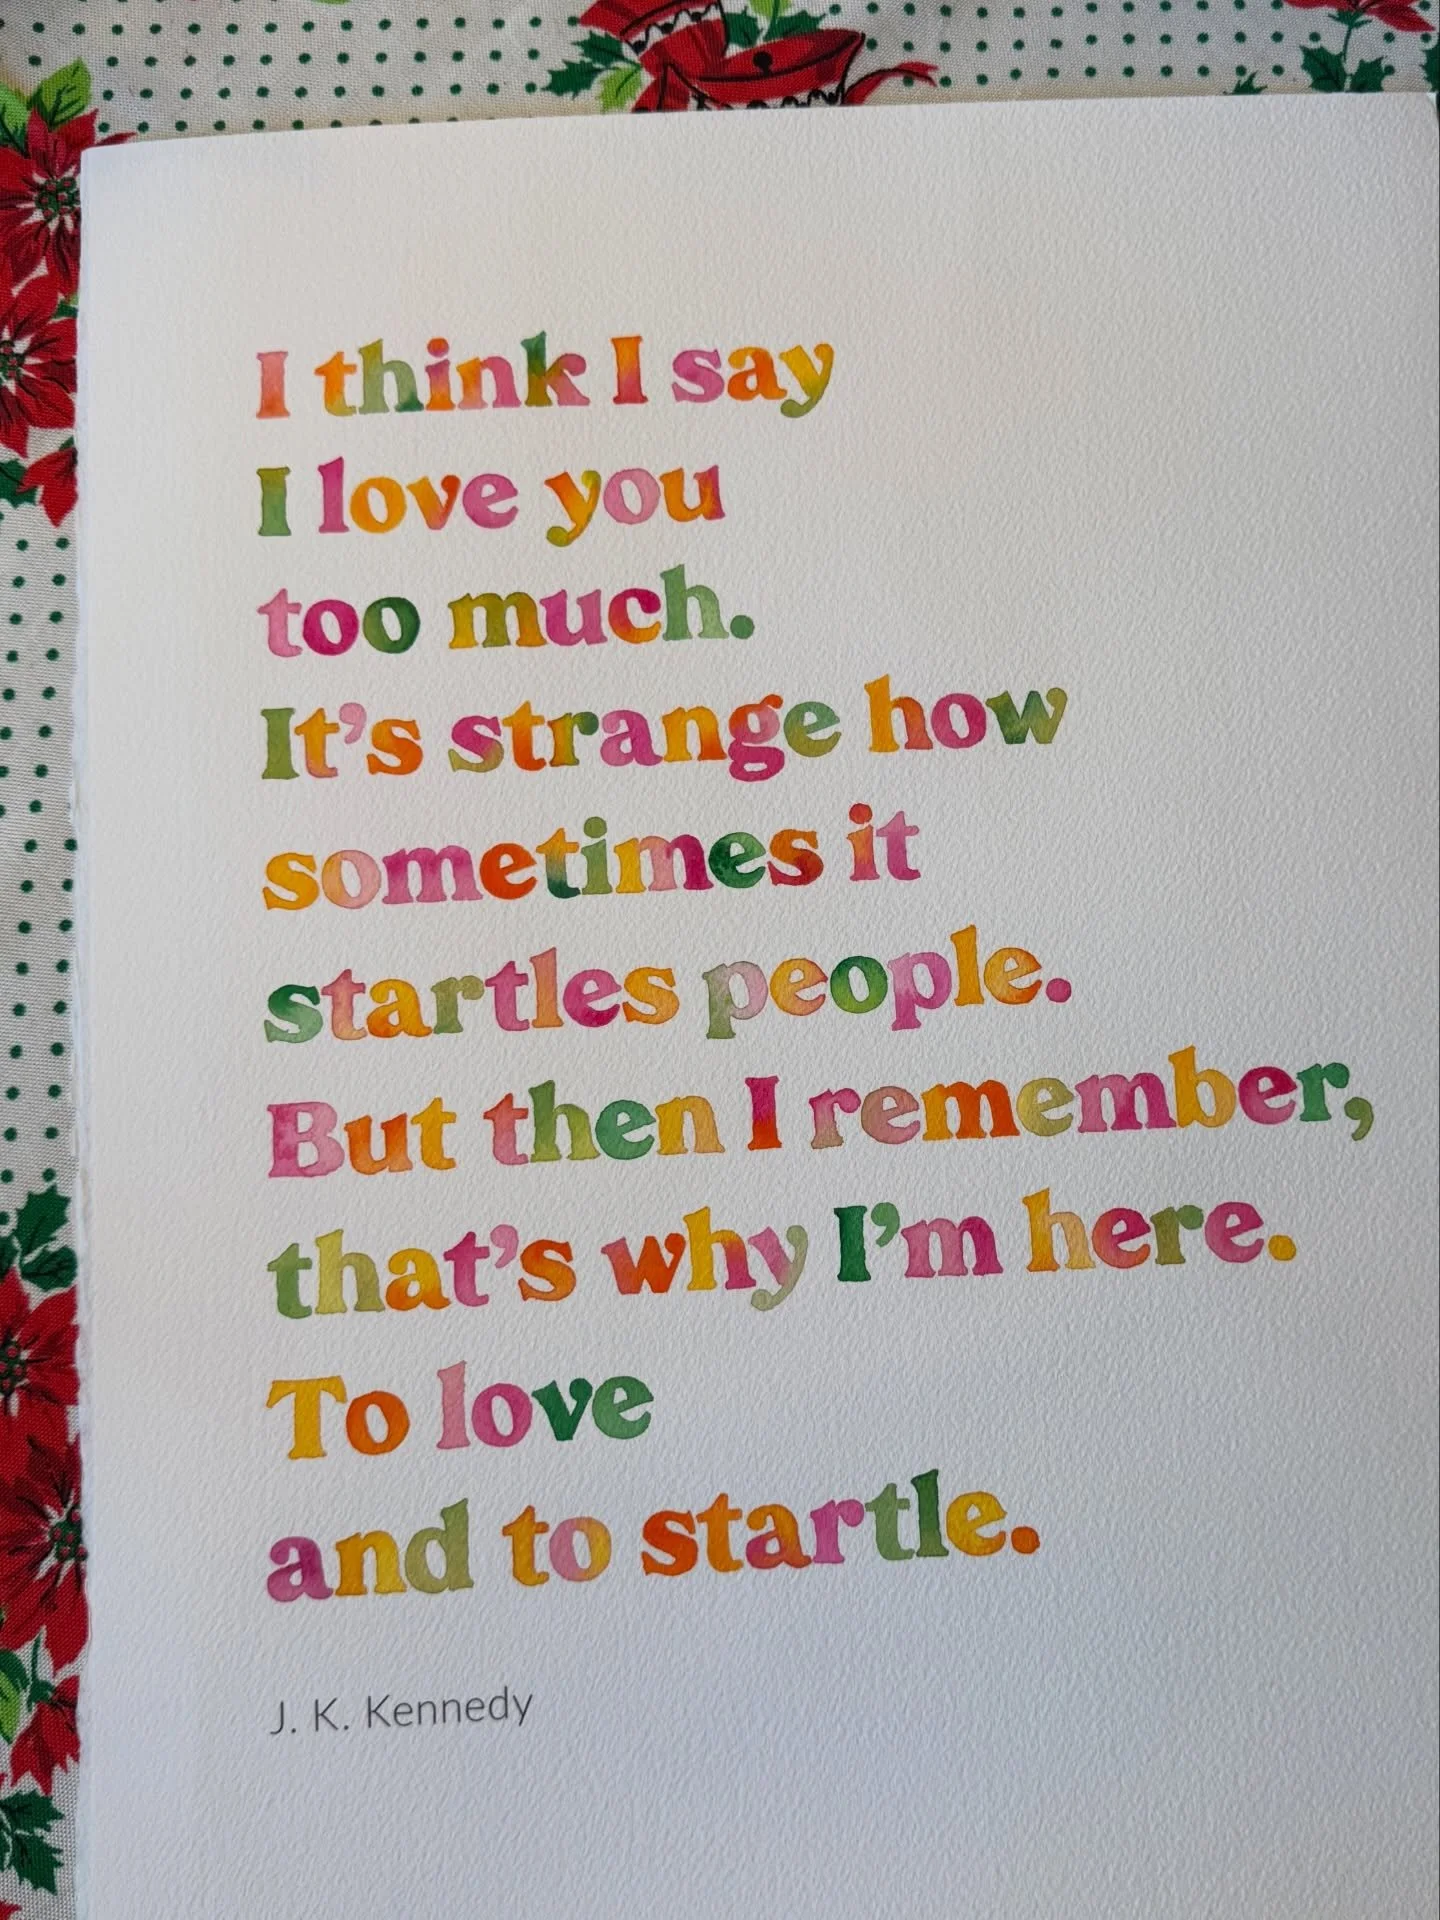 I think I say
I love you
too much.
It's strange how
sometimes it
startles people.
But then I remember,
that's why I'm here.
To love
and to startle.
J. K. Kennedy